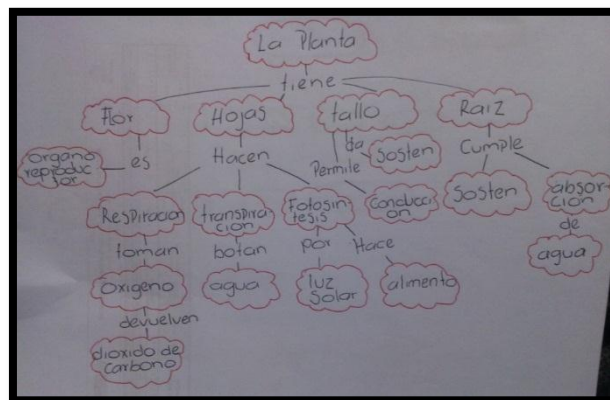 La Planta
tiene
Flor
Hojas
tallo
Raiz
organo
reproduc
tor
es
Hacen
da
Sosten
Permite
Cumple
Respiracion
transpira
cion
Fotosin
tesis
Conducci
on
Sosten
absor-
cion
toman
botan
por
Hace
de
agua
oxigeno
agua
luz
Solar
alimento
devuelven
dioxido de
carbono